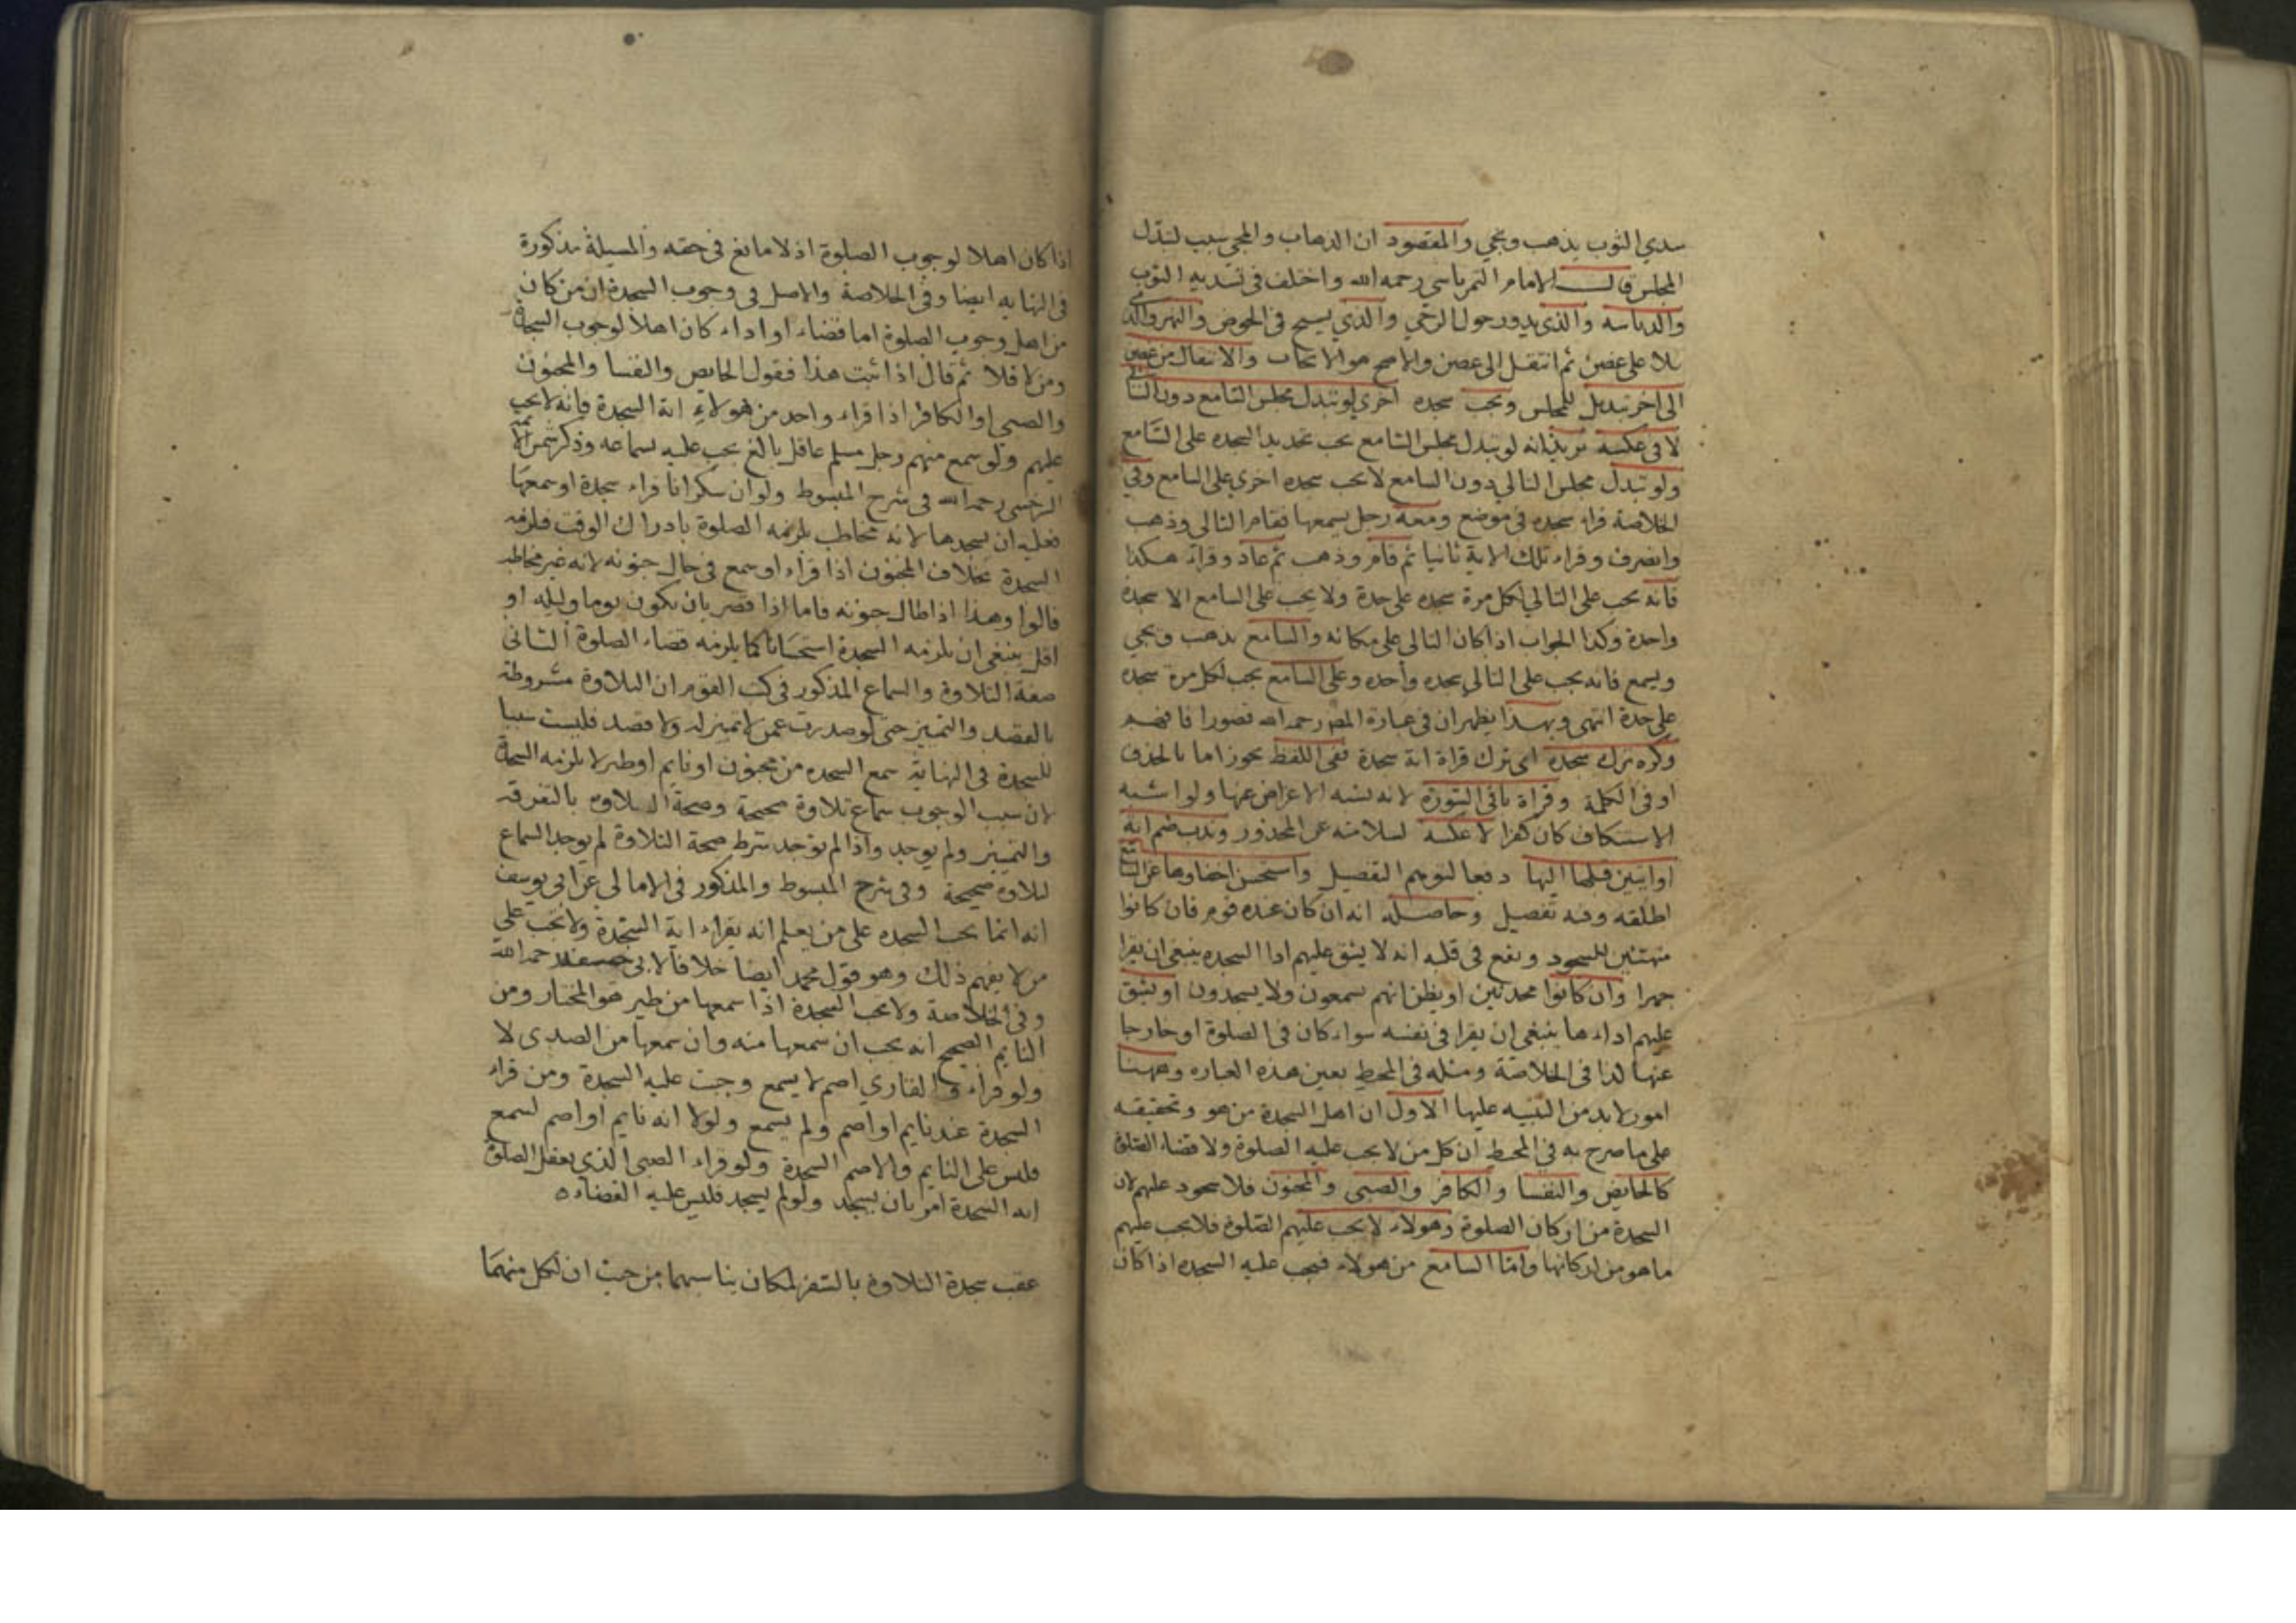 سدي الثوب يذهب ويجي والمقصود ان الذهاب والمجي سبب لتبدل
المجلس قال الامام التمرتاسي رحمه الله واختلف في تسديه الثوب
والدياسه والذي يدور حول الرحي والذي يسبح في الحوض والنهر والذي
تلا على غصن ثم انتقل الى غصن والاصح هو الايجاب والانتقال من غصن
الى اخر تبديل للمجلس وتجب سجده اخري لو تبدل مجلس السامع دون التالي
لا في عكسه يريد انه لو تبدل مجلس السامع يجب تجديد السجده على السامع
ولو تبدل مجلس التالي دون السامع لا يجب سجده اخري على السامع وفي
الخلاصة قراء سجده في موضع ومعه رجل يسمعها فقام التالي وذهب
وانصرف وقراء تلك الاية ثانيا ثم قام وذهب ثم عاد وقراء هكذا
فانه يجب على التالي لكل مرة سجده على حدة ولا يجب على السامع الا سجدة
واحدة وكذا الجواب اذا كان التالي على مكانه والسامع يذهب ويجي
ويسمع فانه يجب على التالي سجده واحده وعلى السامع يجب لكل مرة سجده
على حدة انتهى وبهذا يظهر ان في عبارة المص رحمه الله قصورا فافهم
وكره ترك سجدة اى ترك قراة اية سجدة ففي اللفظ تجوز اما بالحذف
او في الكلمة وقراة باقي السورة لانه يشبه الاعراض عنها ولو اشبه
الاستنكاف كان كفرا لا عكسه لسلامته عن المحذور وندب ضم اية
او ايتين قبلها اليها دفعا لتوهم التفضيل واستحسن اخفاوها عن السامع
اطلقه وفيه تفصيل وحاصله انه ان كان عنده قوم فان كانوا
متهيئين للسجود ويقع في قلبه انه لا يشق عليهم ادا السجده ينبغي ان يقرا
جهرا وان كانوا محدثين او يظن انهم يسمعون ولا يسجدون او يشق
عليهم اداءها ينبغي ان يقرا في نفسه سواء كان في الصلوة او خارجا
عنها لذا في الخلاصة ومثله في المحيط بعين هذه العباره وههنا
امور لابد من التنبيه عليها الاول ان اهل السجدة من هو وتحقيقه
على ما صرح به في المحيط ان كل من لا يجب عليه الصلوة ولا قضاء الصلوة
كالحايض والنفسا والكافر والصبي والمجنون فلا سجود عليهم لان
السجدة من اركان الصلوة وهولاء لا يجب عليهم الصلوة فلا يجب عليهم
ما هو من اركانها واما السامع من هولاء فيجب عليه السجده اذا كان
اذا كان اهلا لوجوب الصلوة اذ لا مانع في حقه والمسيلة مذكورة
في النهايه ايضا وفي الخلاصة والاصل في وجوب السجدة ان من كان
من اهل وجوب الصلوة اما قضاء او اداء كان اهلا لوجوب السجدة
ومن لا فلا ثم قال اذا ثبت هذا فنقول الحايض والنفسا والمجنون
والصبي او الكافر اذا قراء واحد من هولاء اية السجدة فانه لا يجب
عليهم ولو سمع منهم رجل مسلم عاقل بالغ يجب عليه بسماعه وذكر شمس الايمة
السرخسي رحمه الله في شرح المبسوط ولو ان سكرانا قراء سجدة او سمعها
فعليه ان يسجدها لانه مخاطب يلزمه الصلوة بادراك الوقت فلزمه
السجدة بخلاف المجنون اذا قراء او سمع في حال جنونه لانه غير مخاطب
قالوا وهذا اذا طال جنونه فاما اذا قصر بان يكون يوما وليله او
اقل ينبغي ان يلزمه السجدة استحسانا كما يلزمه قضاء الصلوة الثاني
صفة التلاوة والسماع المذكور في كتب القوم ان التلاوة مشروطه
بالقصد والتمييز حتى لو صدرت عمن لا تمييز له ولا قصد فليست سببا
للسجدة في النهاية سمع السجده من مجنون او نايم او طير لا يلزمه السجدة
لان سبب الوجوب سماع تلاوة صحيحة وصحة التلاوه بالتفرقه
والتمييز ولم يوجد واذا لم يوجد شرط صحة التلاوة لم يوجد السماع
لتلاوة صحيحة وفي شرح المبسوط والمذكور في الامالي عن ابي يوسف
انه انما يجب السجده على من يعلم انه يقراء اية السجدة ولا تجب على
من لا يفهم ذلك وهو قول محمد ايضا خلافا لابي حنيفه رحمه الله
وفي الخلاصة ولا يجب السجدة اذا سمعها من طير هو المختار ومن
النايم الصحيح انه يجب ان سمعها منه وان سمعها من الصدى لا
ولو قراء والقاري اصم لا يسمع وجبت عليه السجدة ومن قراء
السجدة عند نايم او اصم ولم يسمع ولولا انه نايم او اصم لسمع
فليس على النايم والاصم السجدة ولو قراء الصبي الذي يعقل الصلوة
اية السجدة امر بان يسجد ولو لم يسجد فليس عليه القضاء ه
عقب سجدة التلاوة بالسفر لمكان يناسبهما من حيث ان لكل منهما